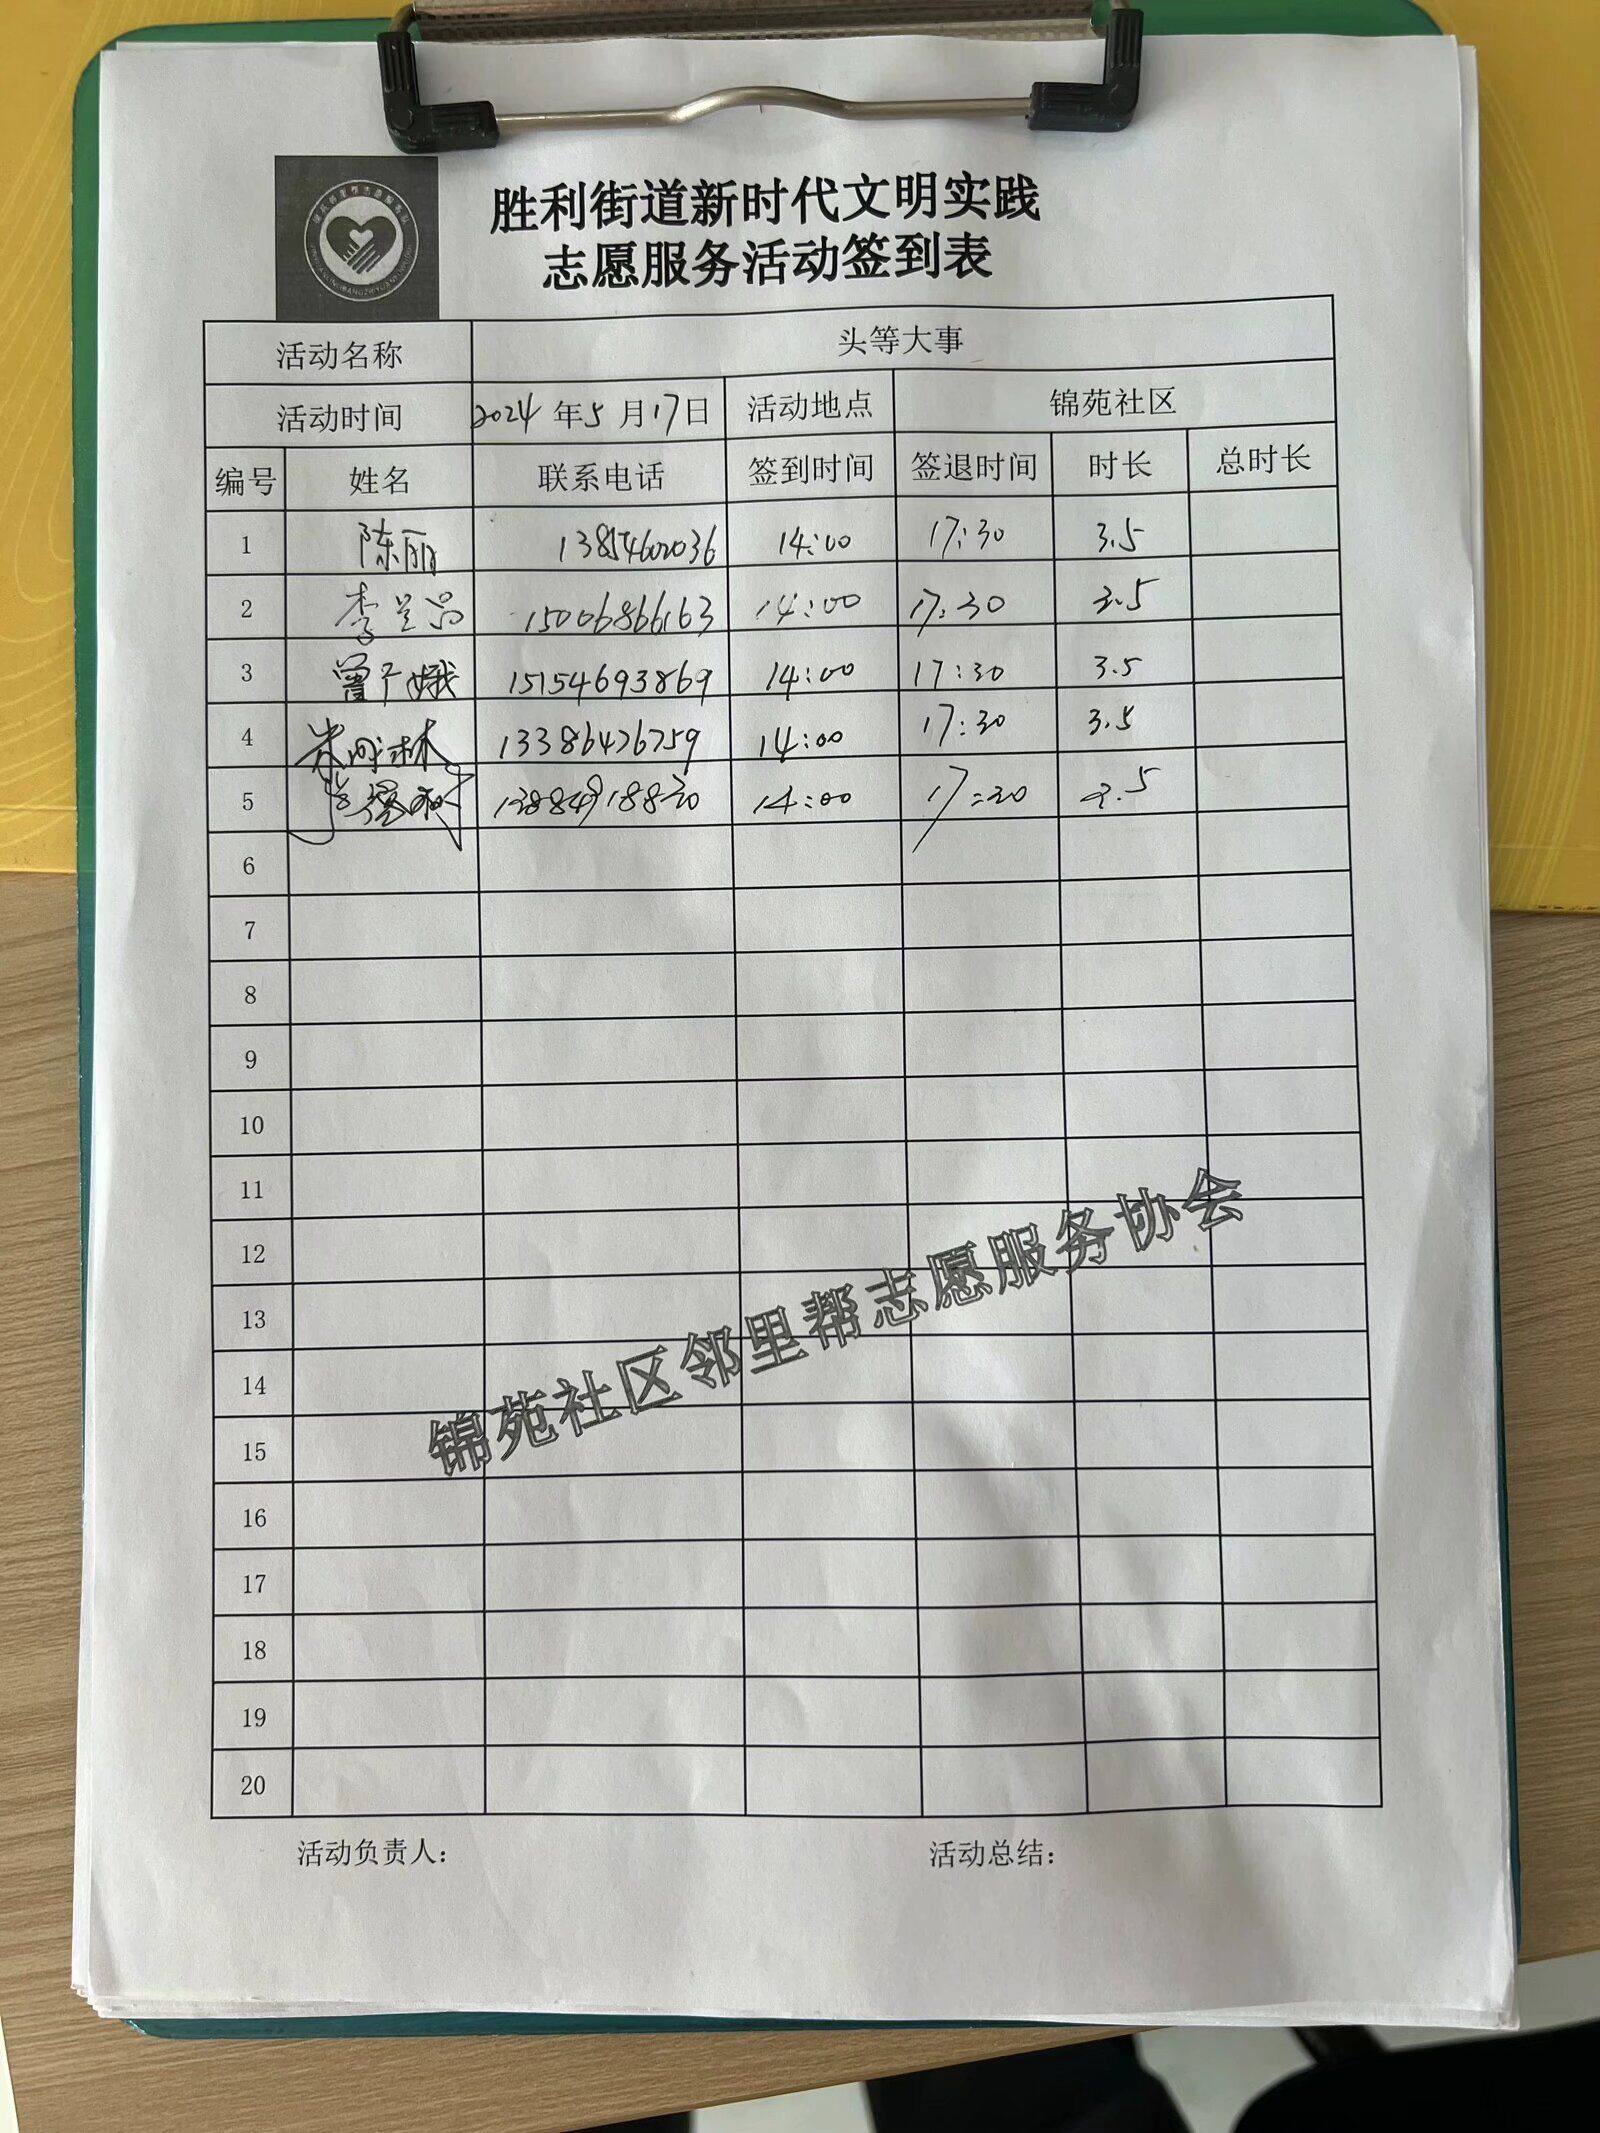 胜利街道新时代文明实践
志愿服务活动签到表
活动名称 头等大事
活动时间 2024年5月17日 活动地点 锦苑社区
编号 姓名 联系电话 签到时间 签退时间 时长 总时长
1 陈丽 13854602036 14:00 17:30 3.5
2 李兰品 15006866163 14:00 17:30 3.5
3 曾广娥 15154693869 14:00 17:30 3.5
4 13386426759 14:00 17:30 3.5
5 14:00 17:30 3.5
6
7
8
9
10
11
12
13
14
15
16
17
18
19
20
锦苑社区邻里帮志愿服务协会
活动负责人: 活动总结: